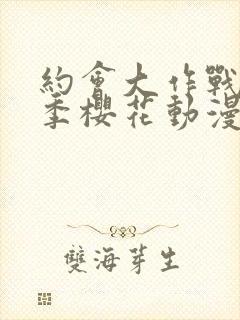 約會大作戰
季櫻花動漫
雙海芽生